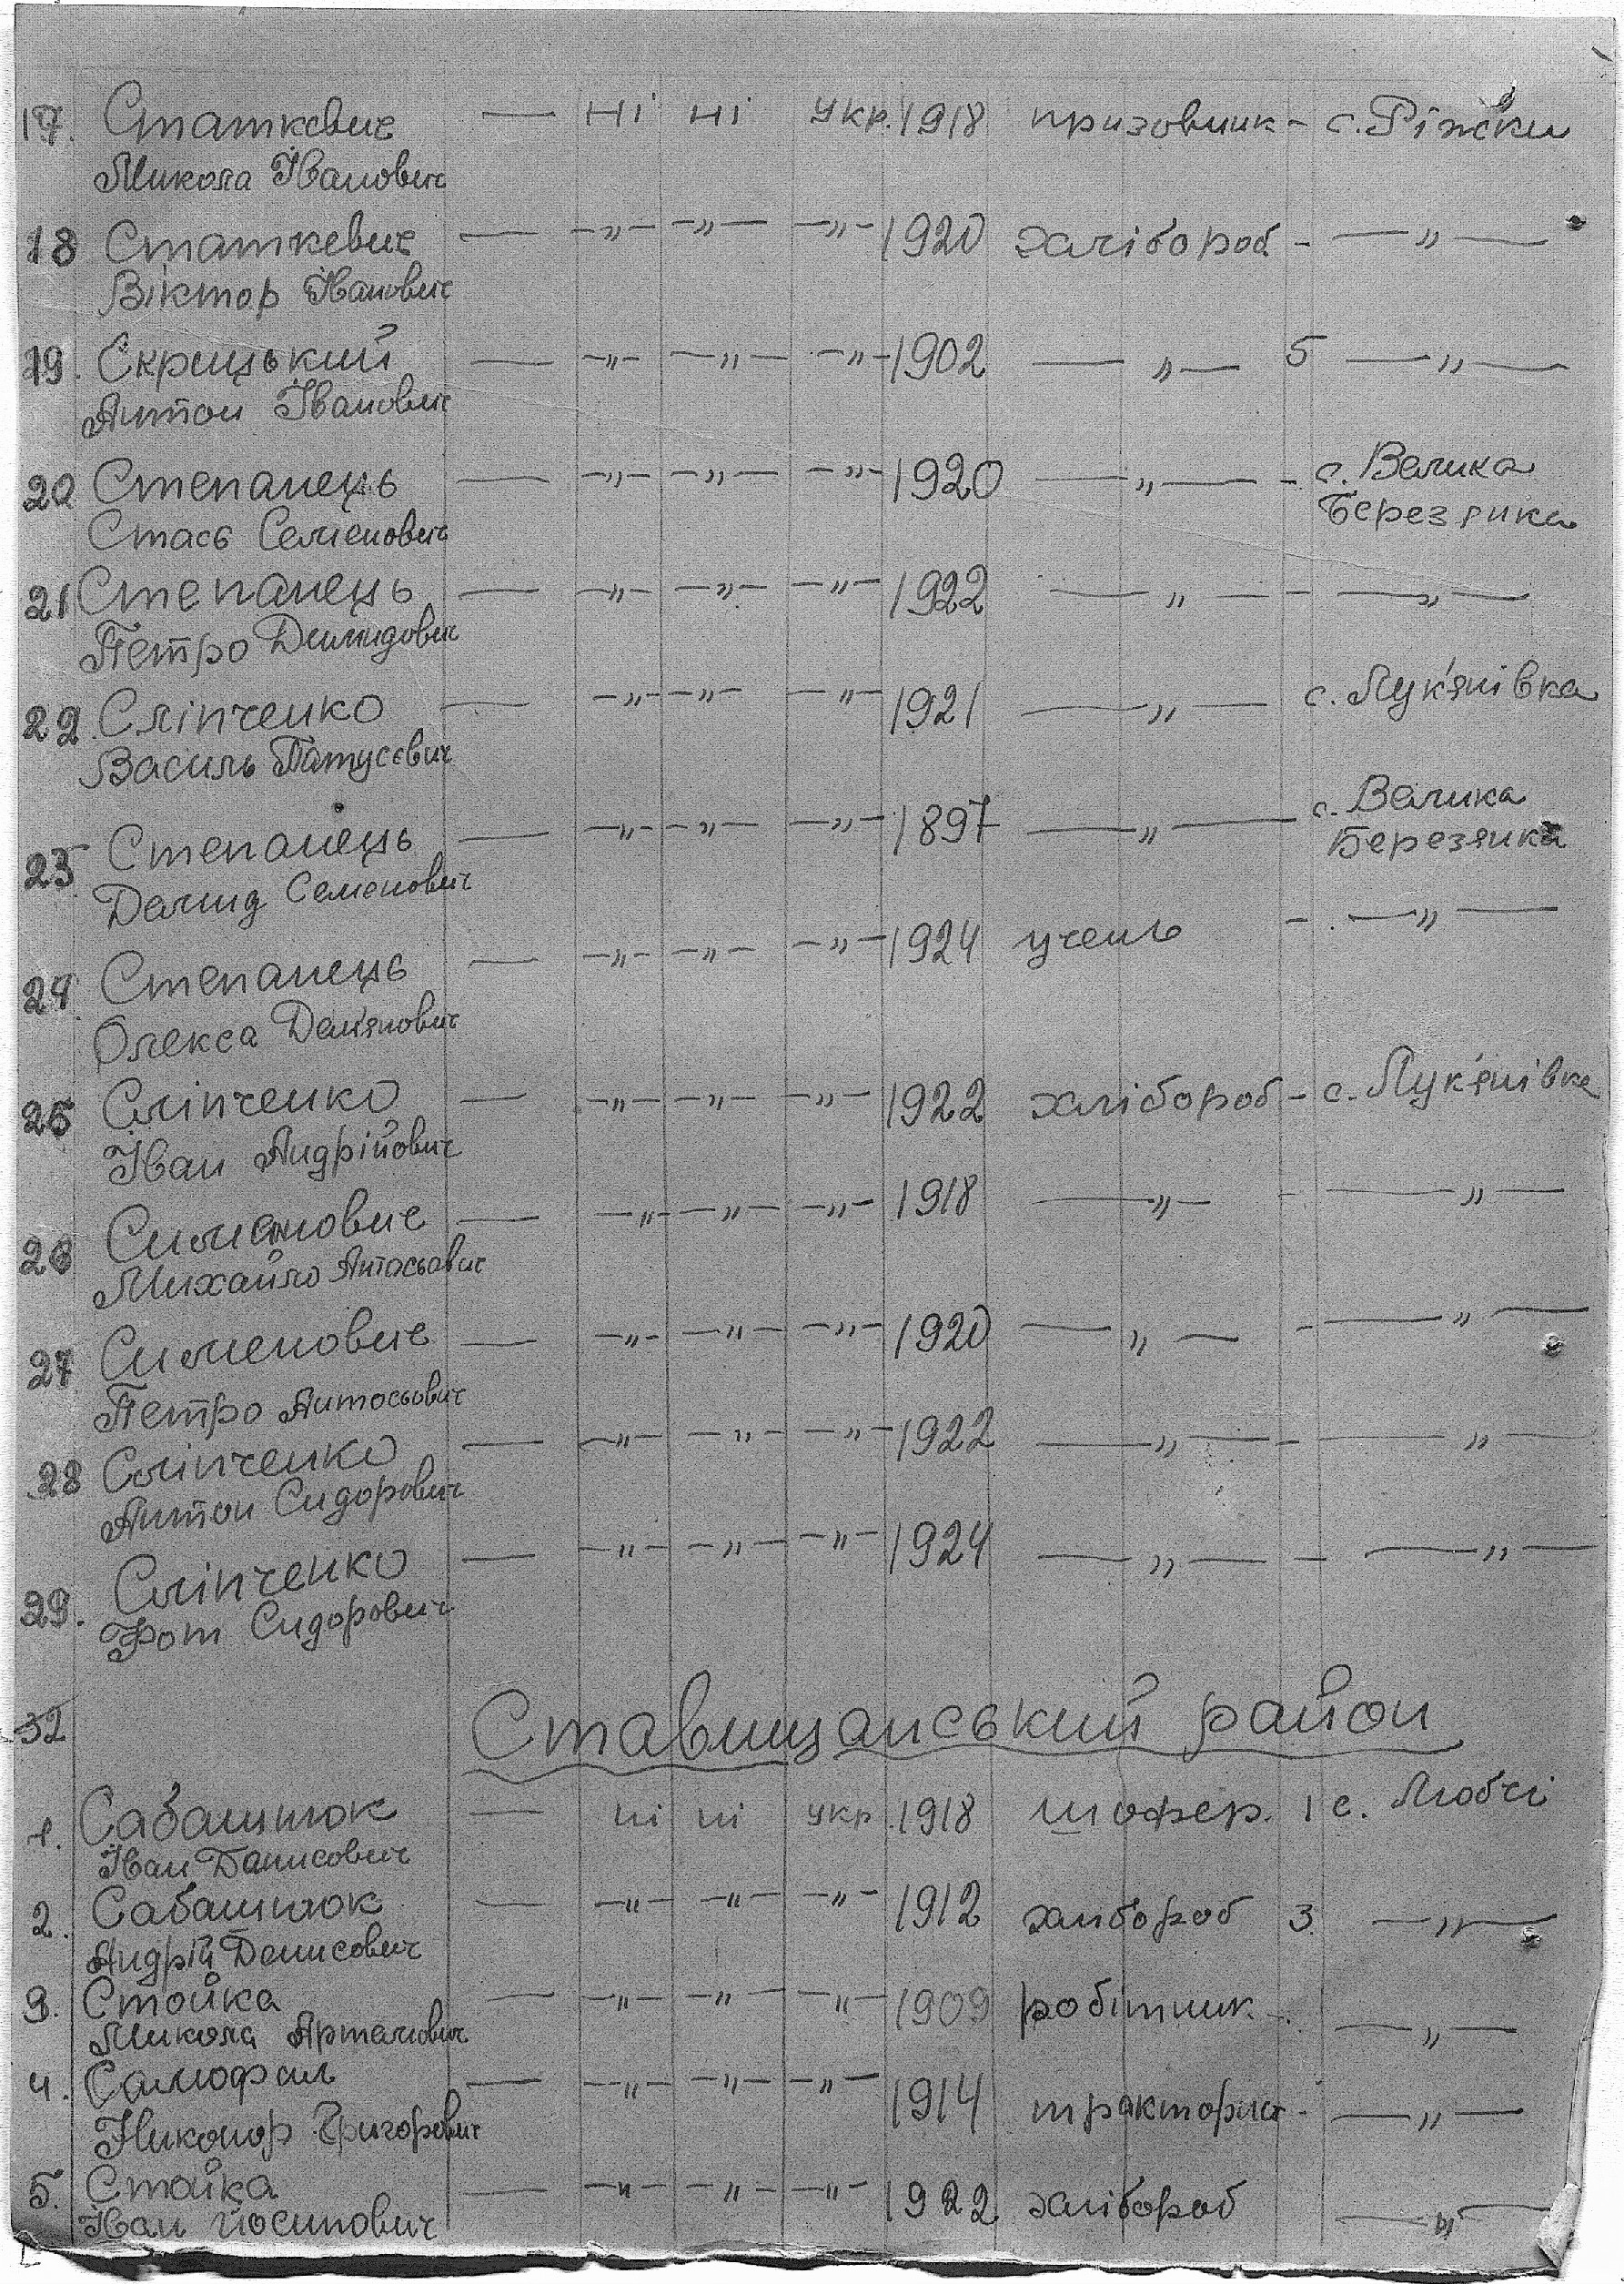 17. Статкевич — Ні ні укр. 1918 призовник - с. Ріжки
Микола Іванович
18 Статкевич — -„- -„- -„- 1920 хлібороб - —„—
Віктор Іванович
19. Скрицький — -„- —„— -„- 1902 —„— 5 —„—
Антон Іванович
20 Степанець — -„- —„— -„- 1920 —„— - с. Велика
Березянка
Стась Семенович
21 Степанець — -„- —„— —„— 1922 —„— - —„—
Петро Демидович
22. Сліпченко — -„- —„— —„— 1921 —„— с. Лук'янівка
Василь
23 Степанець — -„- -„- -„- 1897 —„— с. Велика
Березянка
Демид Семенович
24 Степанець — -„- -„- -„- 1924 учень - —„—
Олекса Дем'янович
25 Сліпченко — -„- -„- -„- 1922 хлібороб - с. Лук'янівка
Іван Андрійович
26 Сименович — -„- —„— -„- 1918 —„— - —„—
Михайло Антосьович
27 Сименович — -„- —„— -„- 1920 —„— - —„—
Петро Антосьович
28 Сліпченко — -„- -„- -„- 1922 —„— - —„—
Антон Сидорович
29. Сліпченко — -„- —„— -„- 1924 —„— - —„—
Фот Сидорович
32 Ставищанський район
1. Сабашнюк — ні ні укр. 1918 шофер. 1 с. Любчі
Іван Данисович
2. Сабашнюк — -„- -„- -„- 1912 хлібороб 3. —„—
Андрій Денисович
3. Стойка — -„- -„- -„- 1909 робітник - —„—
Микола Артемович
4. Самофал — -„- -„- -„- 1914 тракторист - —„—
Никонор Григорович
5. Стойка — -„- -„- -„- 1922 хлібороб —„—
Іван Йосипович